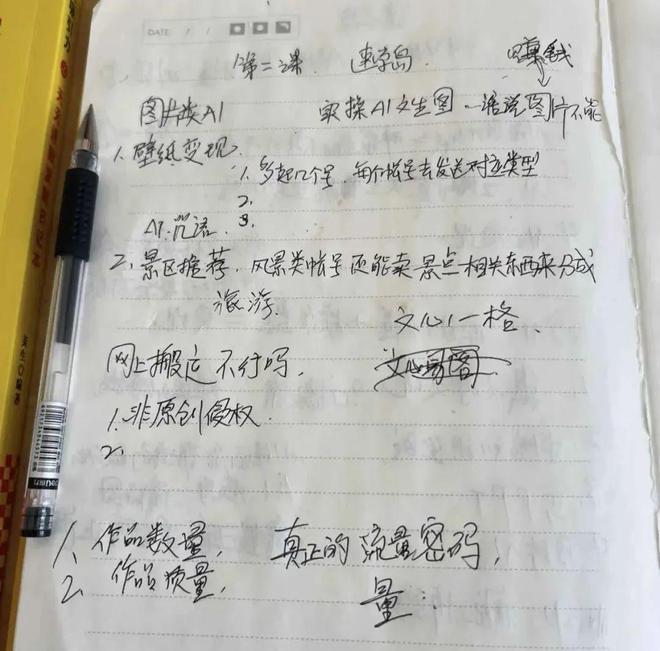 DATE / /
第二课. 速学岛. 赚钱
图片类AI 实操AI文生图 一语说图片不能
1. 壁纸变现.
1. 多起几个号, 每个帐号去发送对应类型
2.
AI. 咒语. 3.
2. 景区推荐, 风景类帐号还能卖景点相关东西来分成
旅游.
文心一格.
网上搬运不行吗,
1. 非原创侵权.
2.
1. 作品数量, 真正的流量密码,
2. 作品质量, 量: